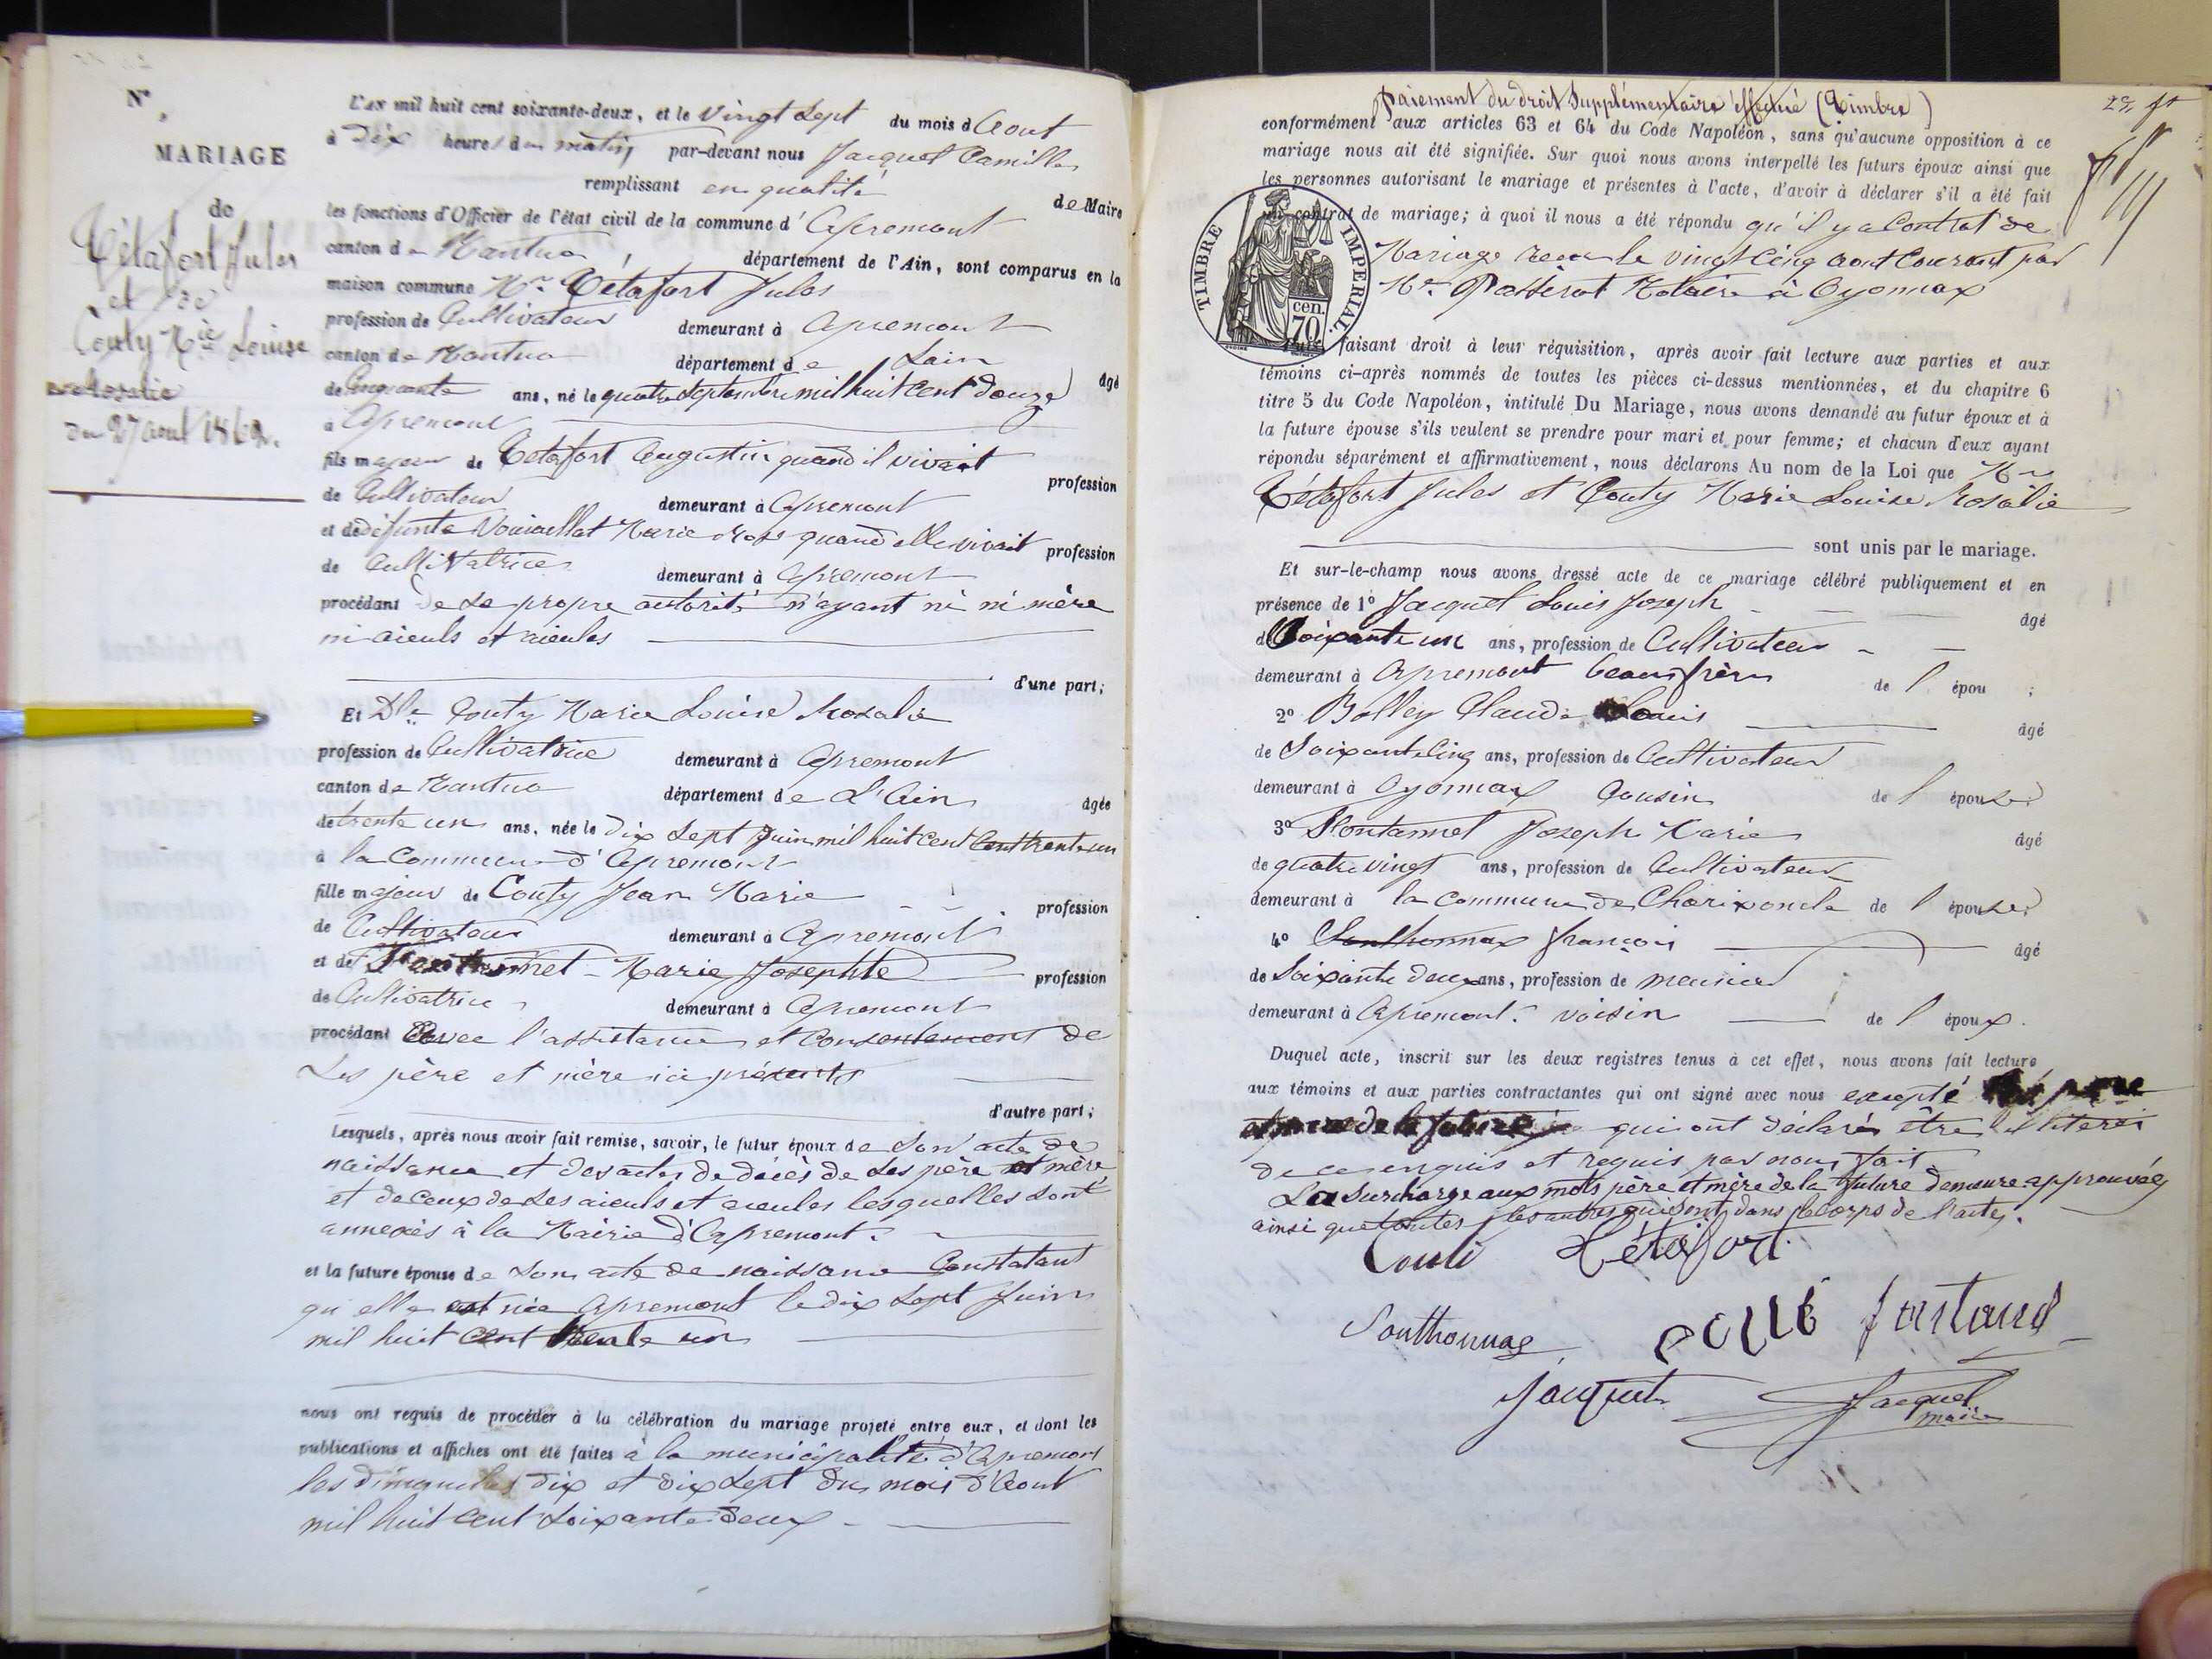 N°
MARIAGE
de
Tétafort Jules
et
Couty Mie Louise
Rosalie
Du 27 aout 1862.
L'an mil huit cent soixante-deux, et le vingt sept du mois d Aout
à Dix heures du matin par-devant nous Jacquet Camille
remplissant en qualité de Maire
les fonctions d'Officier de l'état civil de la commune d'Apremont
canton de Nantua, département de l'Ain, sont comparus en la
maison commune Mr Tétafort Jules
profession de Cultivateur demeurant à Apremont
canton de Nantua département de Lain
âgé
de Cinquante ans, né le quatre Septembre mil huit cent douze
à Apremont
fils majeur de Tétafort Augustin quand il vivait
profession
de Cultivateur demeurant à Apremont
et de défunte Marie Rose quand elle vivait profession
de Cultivatrice demeurant à Apremont
procédant de sa propre autorité n'ayant ni ni mère
ni aieuls et aieules
d'une part;
Et Dlle Couty Marie Louise Rosalie
profession de Cultivatrice demeurant à Apremont
canton de Nantua département de L'Ain âgée
de trente un ans, née le Dix Sept Juin mil huit cent cent trente un
à la Commune d'Apremont
fille majeur de Couty Jean Marie profession
de Cultivateur demeurant à Apremont
et de Marie Josephte profession
de Cultivatrice demeurant à Apremont
procédant avec l'assistance et consentement de
ses père et mère ici présents
d'autre part;
Lesquels, après nous avoir fait remise, savoir, le futur époux de son acte de
naissance et des actes de décès de ses père et mère
et de ceux de ses aieuls et aieules lesquelles sont
annexés à la Mairie d'Apremont.
et la future épouse de son acte de naissance Constatant
qu'elle est née Apremont le dix sept Juin
mil huit cent trente un
nous ont requis de procéder à la célébration du mariage projeté entre eux, et dont les
publications et affiches ont été faites à la municipalité d'Apremont
les dimanches dix et dix sept du mois d'Aout
mil huit cent soixante deux
Paiement du droit Supplémentaire effectué (Timbre)
conformément aux articles 63 et 64 du Code Napoléon, sans qu'aucune opposition à ce
mariage nous ait été signifiée. Sur quoi nous avons interpellé les futurs époux ainsi que
les personnes autorisant le mariage et présentes à l'acte, d'avoir à déclarer s'il a été fait
un contrat de mariage; à quoi il nous a été répondu qu'il y a Contrat de
Mariage recu le vingt Cinq aout Courant par
Mr Passerat Notaire à Oyonnax
TIMBRE IMPERIAL.
cen.
70
Puis, faisant droit à leur réquisition, après avoir fait lecture aux parties et aux
témoins ci-après nommés de toutes les pièces ci-dessus mentionnées, et du chapitre 6
titre 5 du Code Napoléon, intitulé Du Mariage, nous avons demandé au futur époux et à
la future épouse s'ils veulent se prendre pour mari et pour femme; et chacun d'eux ayant
répondu séparément et affirmativement, nous déclarons Au nom de la Loi que Mr
Tétafort Jules et Couty Marie Louise Rosalie
sont unis par le mariage.
Et sur-le-champ nous avons dressé acte de ce mariage célébré publiquement et en
présence de 1° Jacquet Louis Joseph âgé
de Soixante un ans, profession de Cultivateur
demeurant à Apremont beaufrère de l épou ;
2° Bolley Claude Louis âgé
de Soixante Cinq ans, profession de Cultivateur
demeurant à Oyonnax Cousin de l épouse;
3° Joseph Marie âgé
de quatre vingt ans, profession de Cultivateur
demeurant à la commune de de l épouse;
4° Southonnax françois âgé
de Soixante deux ans, profession de meunier
demeurant à Apremont. voisin de l époux.
Duquel acte, inscrit sur les deux registres tenus à cet effet, nous avons fait lecture
aux témoins et aux parties contractantes qui ont signé avec nous excepté les père
et mere de la future qui ont déclarés être illitérés
de ce enquis et requis par nous fait
La Surcharge aux mots père et mère de la future demeure approuvée
ainsi que toutes les autres qui sont dans le corps de l'acte.
Couti Tétafort
Southonnax
Jacquet Jacquet
maire